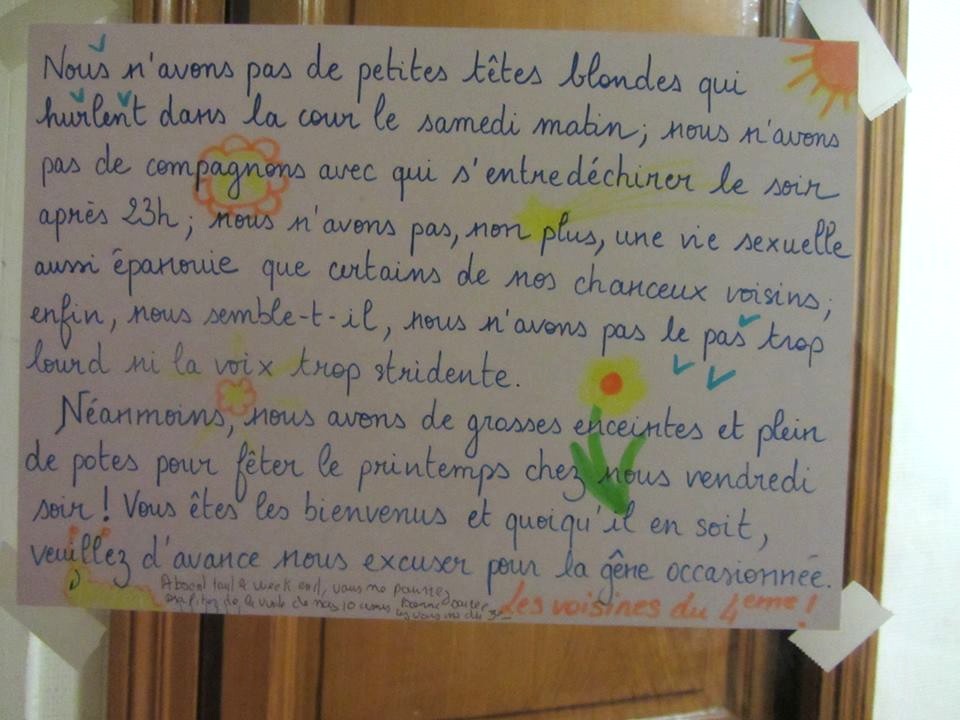 Nous n'avons pas de petites têtes blondes qui
hurlent dans la cour le samedi matin ; nous n'avons
pas de compagnons avec qui s'entredéchirer le soir
après 23h ; nous n'avons pas, non plus, une vie sexuelle
aussi épanouie que certains de nos chanceux voisins ;
enfin, nous semble-t-il, nous n'avons pas le pas trop
lourd ni la voix trop stridente.
Néanmoins, nous avons de grosses enceintes et plein
de potes pour fêter le printemps chez nous vendredi
soir ! Vous êtes les bienvenus et quoiqu'il en soit,
veuillez d'avance nous excuser pour la gêne occasionnée.
Absent tout le week end, vous ne pourrez
profiter de la de nos 10 Bonne soirée
du 3
Les voisines du 4eme !